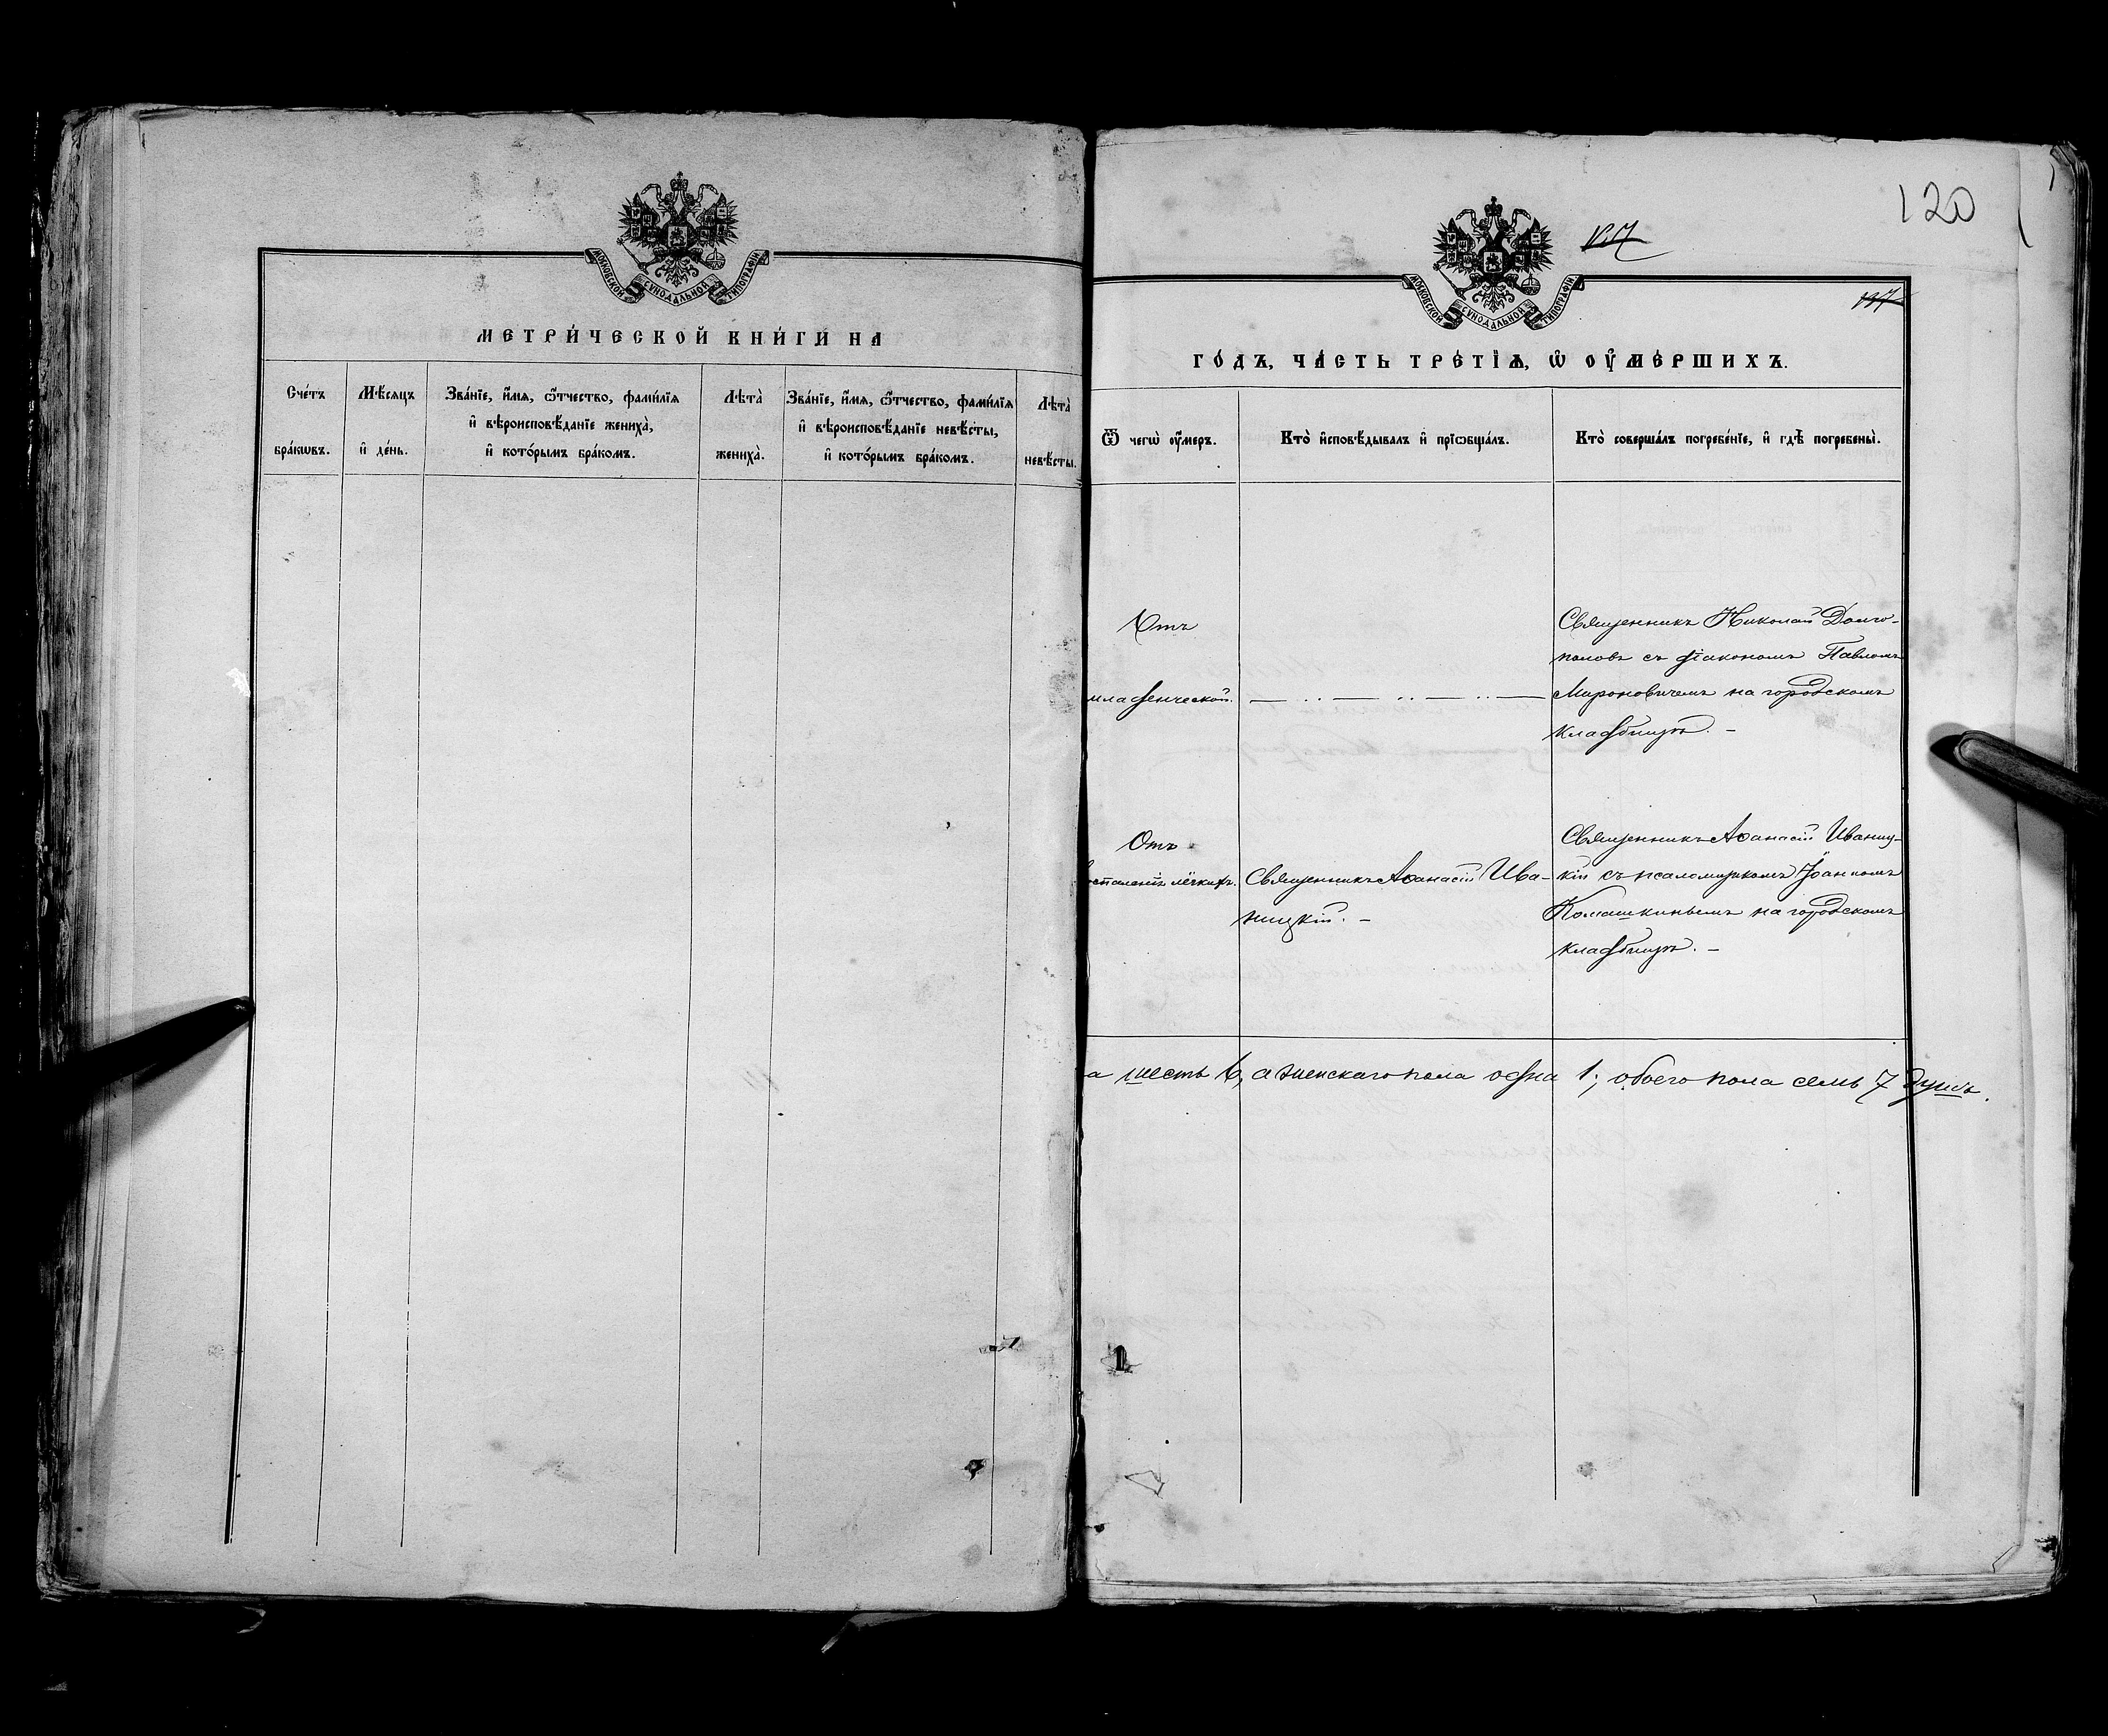 МОСКОВСКОЙ СУНОДАЛЬНОЙ ТИПОГРАФІИ
МЕТРИ́ЧЕСКОЙ КНИ́ГИ НА
Сче́тъ бра́кѡвъ.
Мѣ́сяцъ и҆ де́нь.
Зва́нїе, и҆́мѧ, ѻ҆́тчество, фами́лїѧ
и҆ вѣроисповѣ́данїе жениха̀,
и҆ кото́рымъ бра́комъ.
Лѣта̀ жениха̀.
Зва́нїе, и҆́мѧ, ѻ҆́тчество, фами́лїѧ
и҆ вѣроисповѣ́данїе невѣ́сты,
и҆ кото́рымъ бра́комъ.
Лѣта̀ невѣ́сты.
120
МОСКОВСКОЙ СУНОДАЛЬНОЙ ТИПОГРАФІИ
ГО́ДЪ, ЧА́СТЬ ТРЕ́ТЇѦ, Ѡ҆ ОУ҆МЕ́РШИХЪ.
Ѿ чегѡ̀ оу҆́меръ.
Кто̀ и҆сповѣ́дывалъ и҆ прїѡбща́лъ.
Кто̀ соверша́лъ погребе́нїе, и҆ гдѣ̀ погребены̀.
Отъ
младенческой.
Священникъ Николай Долго-
половъ съ діакономъ Павломъ
Мироновичемъ на городскомъ
кладбищѣ. –
Отъ
воспаленія лёгкихъ.
Священникъ Аѳанасій Ива-
ницкій. –
Священникъ Аѳанасій Иваниц-
кій съ псаломщикомъ Іоанномъ
Комашкинымъ на городскомъ
кладбищѣ. –
а шесть 6, а женскаго пола одна 1; обоего пола семь 7 душъ.
1